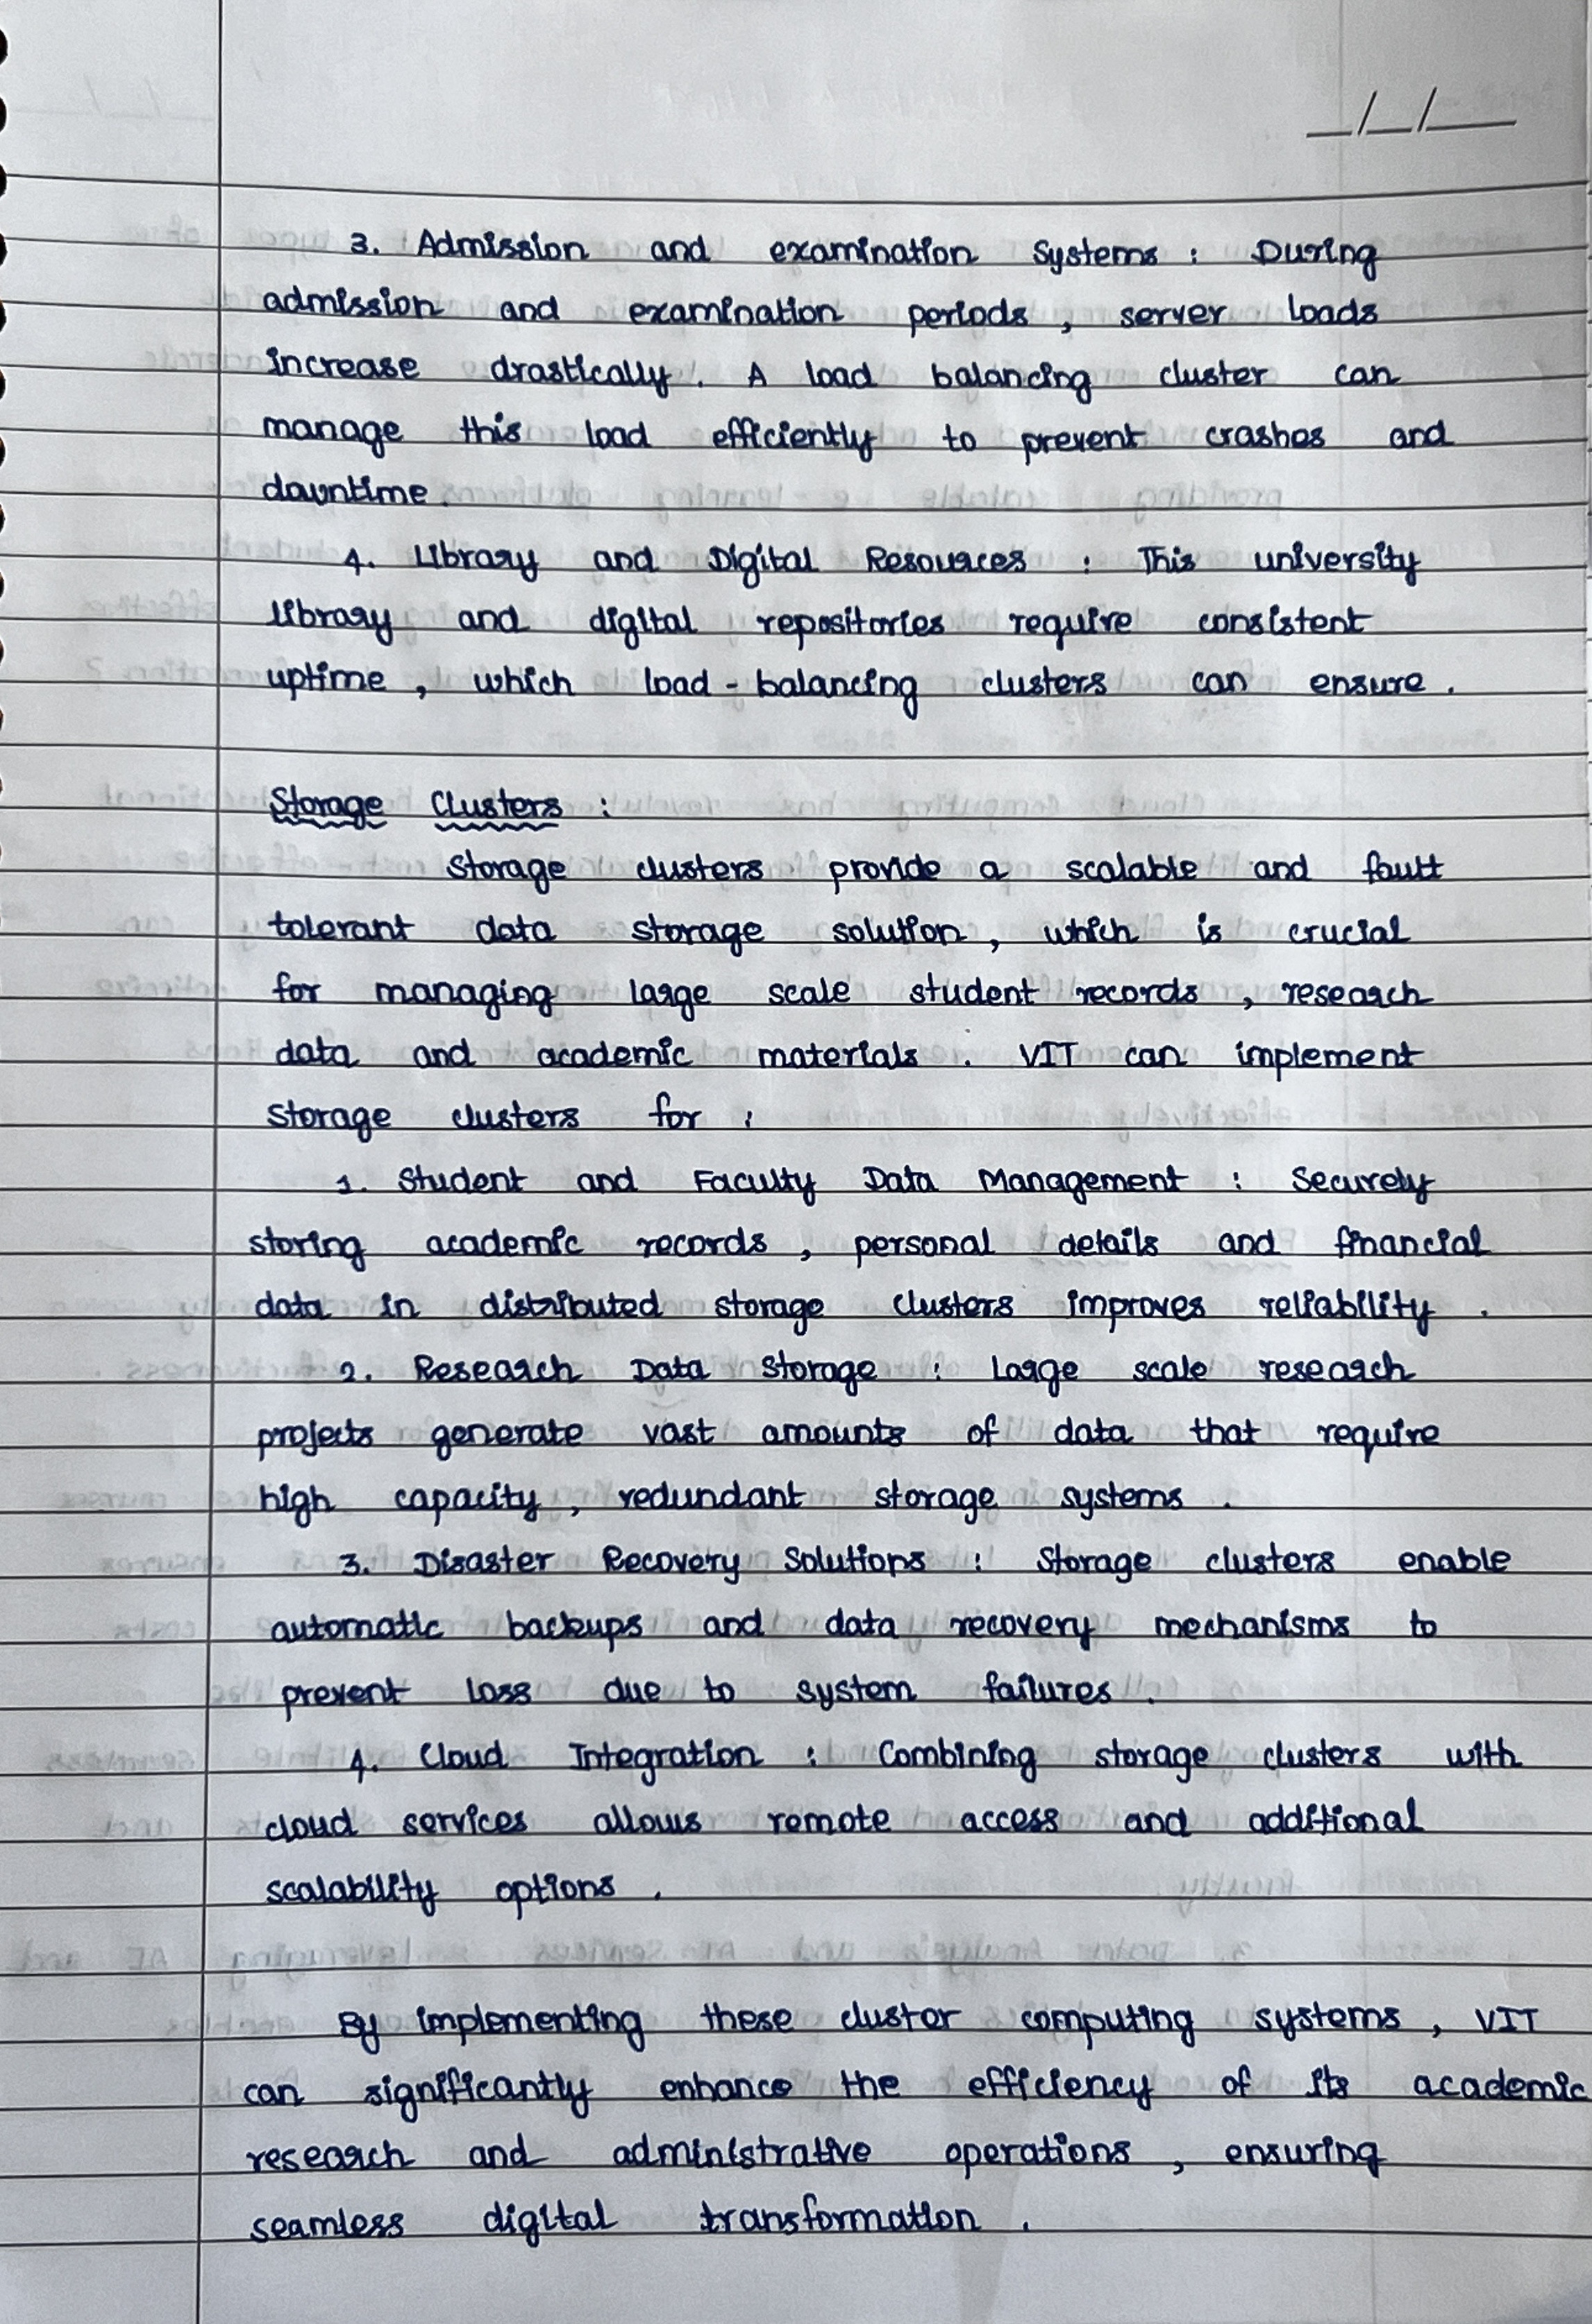 __/__/____
3. Admission and examination Systems : During
admission and examination periods , server loads
increase drastically . A load balancing cluster can
manage this load efficiently to prevent crashes and
downtime .
4. Library and Digital Resources : This university
library and digital repositories require consistent
uptime , which load - balancing clusters can ensure .
Storage Clusters :
Storage clusters provide a scalable and fault
tolerant data storage solution , which is crucial
for managing large scale student records , research
data and academic materials . VIT can implement
storage clusters for :
1. Student and Faculty Data Management : Securely
storing academic records , personal details and financial
data in distributed storage clusters improves reliability .
2. Research Data Storage : Large scale research
projects generate vast amounts of data that require
high capacity , redundant storage systems .
3. Disaster Recovery Solutions : Storage clusters enable
automatic backups and data recovery mechanisms to
prevent loss due to system failures .
4. Cloud Integration : Combining storage clusters with
cloud services allows remote access and additional
scalability options .
By implementing these cluster computing systems , VIT
can significantly enhance the efficiency of its academic
research and administrative operations , ensuring
seamless digital transformation .